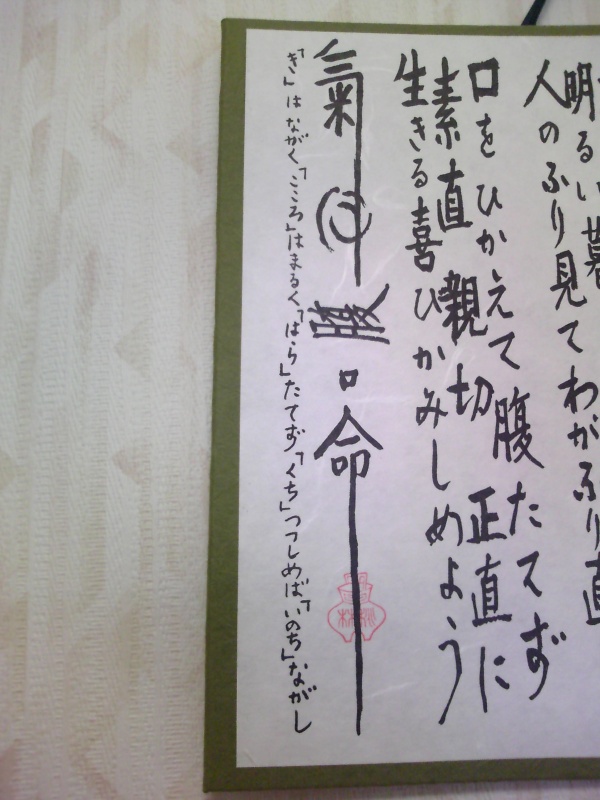 明るい暮
人のふり見てわがふり直
口をひかえて腹たてず
素直 親切 正直に
生きる喜びかみしめよう
氣心腹口命
「き」はながく「こころ」はまるく「はら」たてず「くち」つつしめば「いのち」ながし